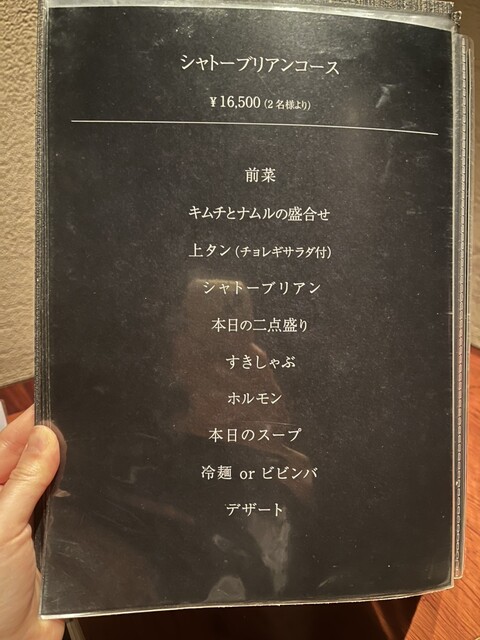 シャトーブリアンコース
¥16,500（2名様より）
前菜
キムチとナムルの盛合せ
上タン（チョレギサラダ付）
シャトーブリアン
本日の二点盛り
すきしゃぶ
ホルモン
本日のスープ
冷麺 or ビビンバ
デザート